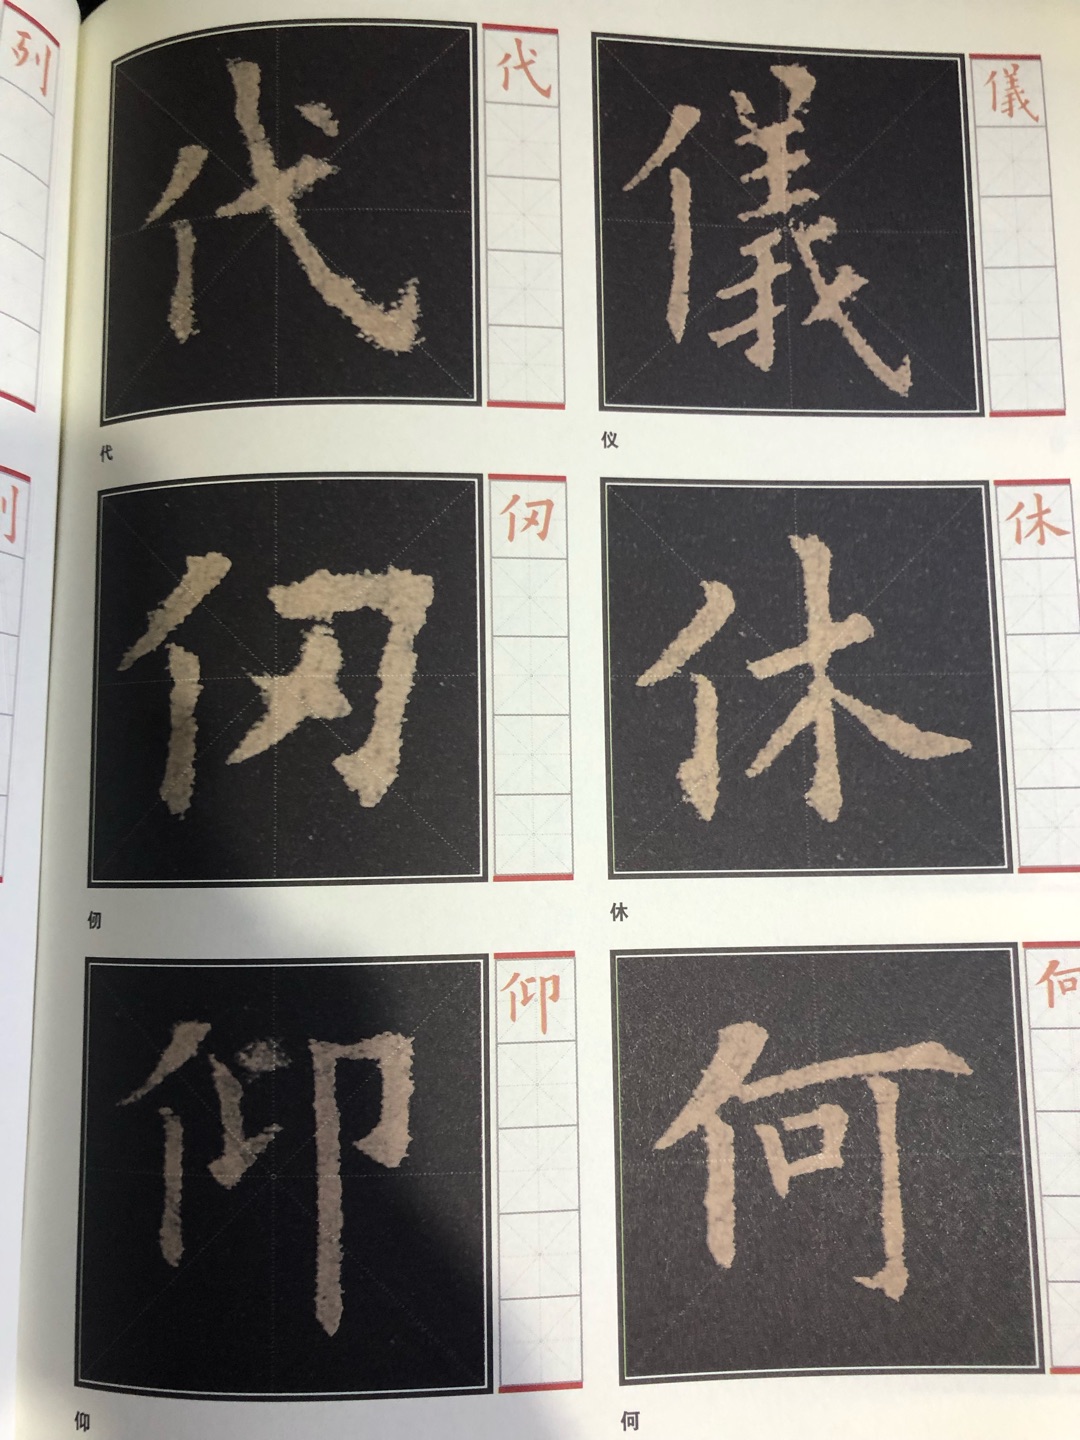 列
代 代 儀 儀
代 仪
刂
仞 仞 休 休
仞 休
仰 仰 何 何
仰 何